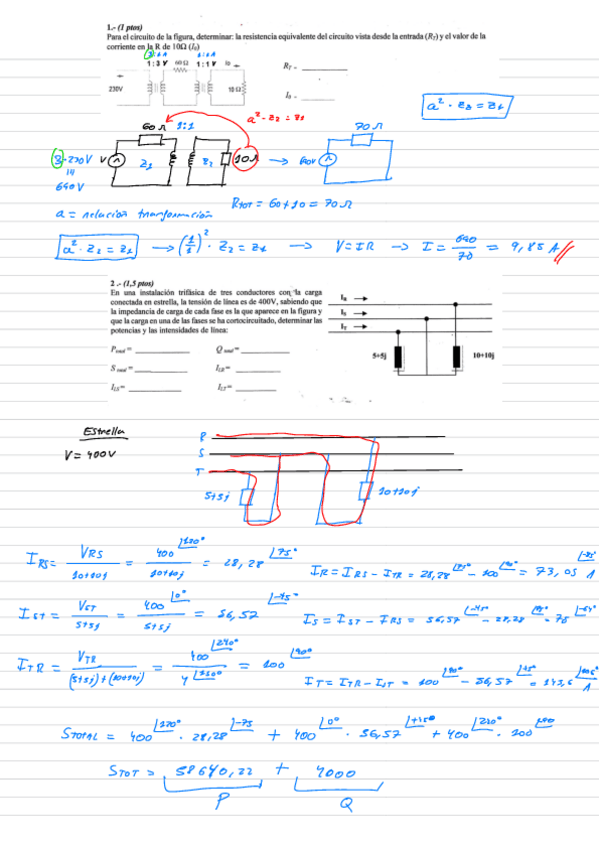 1.- (1 ptos)
Para el circuito de la figura, determinar: la resistencia equivalente del circuito vista desde la entrada (RT) y el valor de la
corriente en la R de 10Ω (I0)
1:3 V 60 Ω 1:1 V I0
RT =
230V
10 Ω
I0 =
a² · Z2 = Z1
60 Ω 1:1
a² · Z2 = Z1
70 Ω
3 · 230 V
V
Z1
Z2
10Ω
690 V
a = relacion transformación
RTOT = 60 + 10 = 70 Ω
a² · Z2 = Z1 → (1/1)² · Z2 = Z1 → V = IR → I = 690/70 = 9,85 A
2 .- (1,5 ptos)
En una instalación trifásica de tres conductores con la carga
conectada en estrella, la tensión de línea es de 400V, sabiendo que
la impedancia de carga de cada fase es la que aparece en la figura y
que la carga en una de las fases se ha cortocircuitado, determinar las
potencias y las intensidades de línea:
IR
IS
IT
5+5j
10+10j
Ptotal =
Qtotal =
Stotal =
ILR =
ILS =
ILT =
Estrella
V = 400V
R
S
T
5+5j
10+10j
IRS = VRS/10+10j = 400∟120°/10+10j = 28,28∟75°
IR = IRS - ITR = 28,28 - 100 = 73,05 A
IST = VST/5+5j = 400∟0°/5+5j = 56,57∟-45°
IS = IST - IRS = 56,57 - 28,28 = 75
ITR = VTR/(5+5j)+(10+10j) = 400∟240° = 100
IT = ITR - IST = 100 - 56,57 = 143,6 A
STOTAL = 400∟120° · 28,28∟-75 + 400∟0° · 56,57 + 400 · 100
STOT = 58640,22 + 4000
P
Q